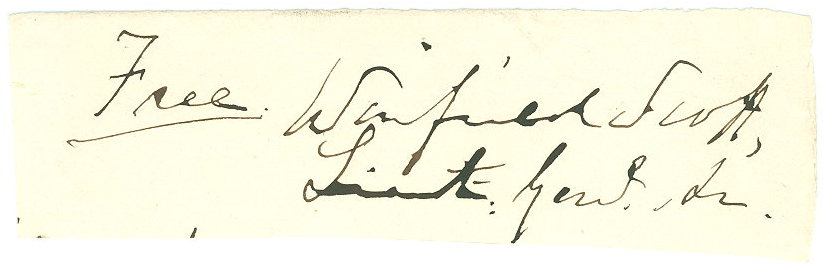 Free. Winfield Scott,
Lieut. Genl. &c.